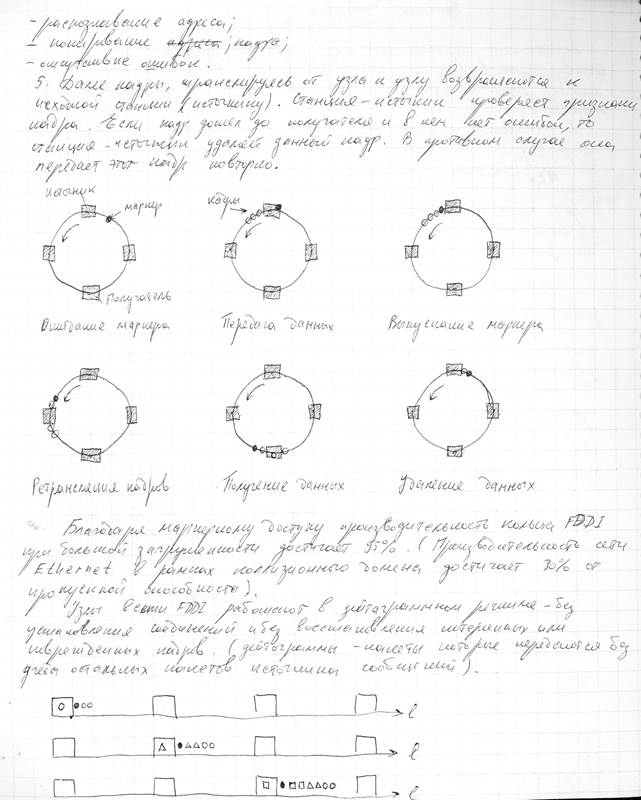 - распознавание адреса;
- копирование адреса; кадра;
- отсутствие ошибок.
5. Далее кадры, транслируясь от узла к узлу возвращаются к
исходной станции (источнику). Станция-источник проверяет признаки
кадра. Если кадр дошел до получателя и в нем нет ошибок, то
станция-источник удаляет данный кадр. В противном случае она
передает этот кадр повторно.
маркер кадры
Получатель
Ожидание маркера Передача данных Выпускание маркера
Ретрансляция кадров Получение данных Удаление данных
Благодаря маркерному доступу производительность кольца FDDI
при большой загруженности достигает 95%. (Производительность сети
Ethernet в рамках коллизионного домена достигает 30% от
пропускной способности).
Узлы в сети FDDI работают в дейтаграммном режиме - без
установления соединений и без восстановления потерянных или
повреждённых кадров. (дейтограммы - пакеты которые передаются без
учёта остальных пакетов источника сообщений).
l
l
l